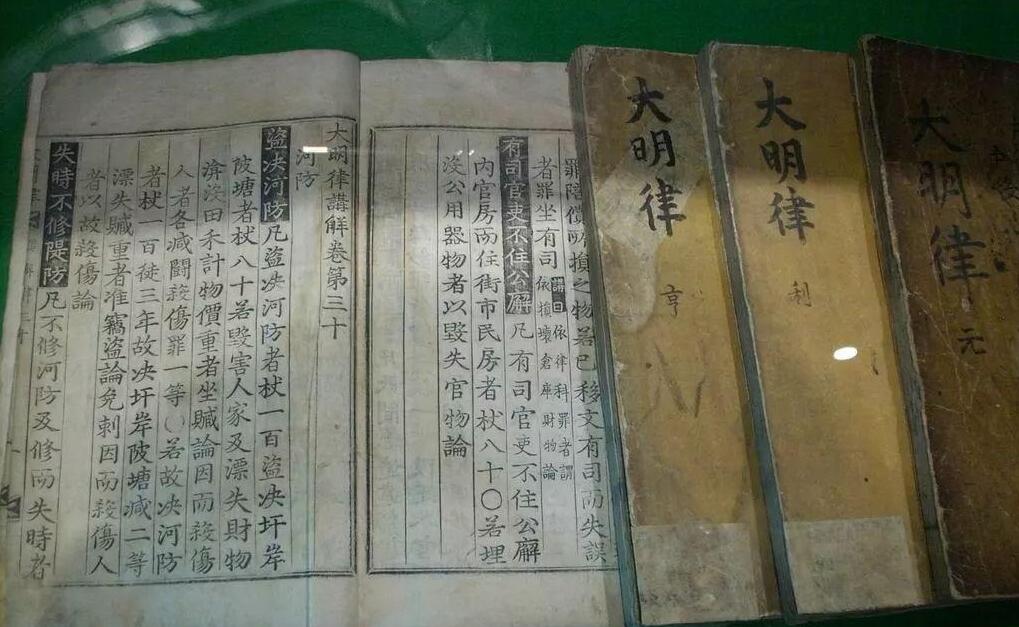 大明律
元
大明律
利
大明律
亨
罪陪償所損之物若已移文有司而失誤
者罪坐有司
講曰依律科罪者謂
依損壞倉庫財物論
有司官吏不住公廨凡有司官吏不住公廨
內官房而住街市民房者杖八十〇若埋
沒公用器物者以毀失官物論
大明律講解卷第三十
河防
盜决河防凡盜决河防者杖一百盜决圩岸
陂塘者杖八十若毀害人家及漂失財物
渰沒田禾計物價重者坐贓論因而殺傷
人者各減鬪殺傷罪一等〇若故决河防
者杖一百徒三年故决圩岸陂塘減二等
漂失贓重者准竊盜論免刺因而殺傷人
者以故殺傷論
失時不修隄防凡不修河防及修而失時者